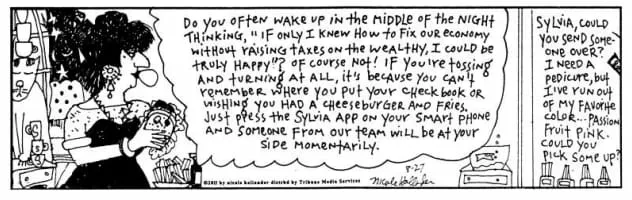 Do you often wake up in the middle of the night
thinking, "if only I knew how to fix our economy
without raising taxes on the wealthy, I could be
truly happy"? Of course not! If you're tossing
and turning at all, it's because you can't
remember where you put your checkbook or
wishing you had a cheeseburger and fries.
Just press the Sylvia app on your smart phone
and someone from our team will be at your
side momentarily.
8-27
©2011 by nicole hollander distrbd by Tribune Media Services
Nicole Hollander
Sylvia, could
you send some-
one over?
I need a
pedicure, but
I've run out
of my favorite
color... Passion
Fruit Pink.
Could you
pick some up?